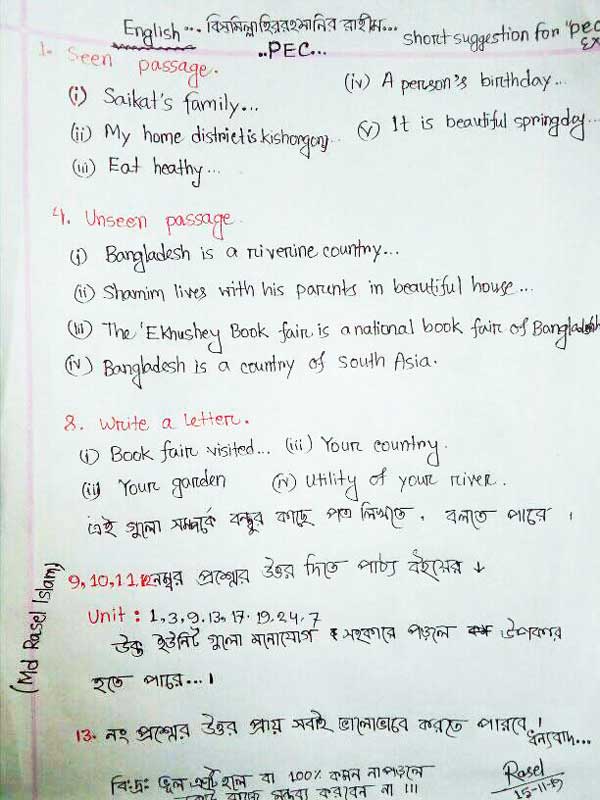 English... বিসমিল্লাহিররহমানির রাহীম...
..PEC...
short suggestion for "pec
Ex
1. Seen passage.
(i) Saikat's family...
(ii) My home district is kishorgonj...
(iii) Eat heathy...
(iv) A person's birthday...
(v) It is beautiful spring day...
4. Unseen passage.
(i) Bangladesh is a riverine country...
(ii) Shamim lives with his parents in beautiful house...
(iii) The 'Ekhushey Book fair is a national book fair of Bangladesh
(iv) Bangladesh is a country of South Asia.
8. Write a letter.
(i) Book fair visited... (iii) Your country.
(ii) Your garden (iv) Utility of your river.
এই গুলো সম্পর্কে বন্ধুর কাছে পত্র লিখতে, বলতে পারে।
9,10,11,12 নম্বর প্রশ্নের উত্তর দিতে পাঠ্য বইয়ের ↓
Unit : 1,3,9,13,17,19,24,7
উক্ত ইউনিট গুলো মনোযোগ সহকারে পড়লে উপকার
হতে পারে...।
13. নং প্রশ্নের উত্তর প্রায় সবাই ভালোভাবে করতে পারবে।
ধন্যবাদ...
বি:দ্র: ভুল ত্রুটি হলে বা 100% কমন না পড়লে
করবেন না !!!
Rasel
15-11-19
(Md Rasel Islam)